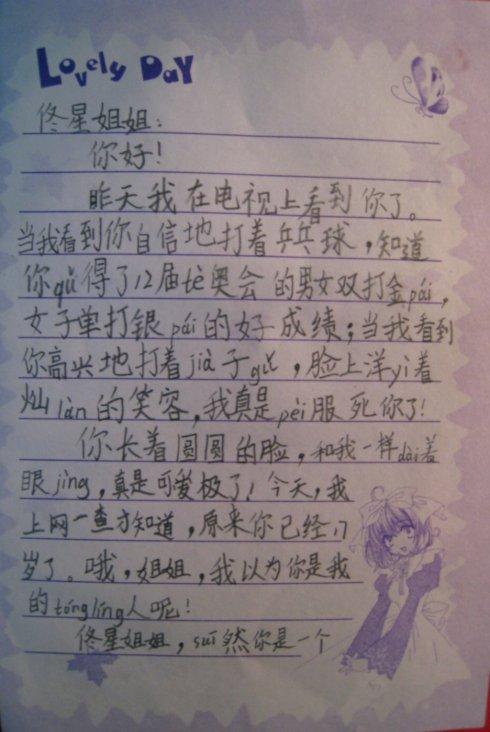 LOVELY DAY
佟星姐姐：
你好！
昨天我在电视上看到你了。
当我看到你自信地打着乒乓球，知道
你qǔ得了12届tè奥会的男女双打金pái，
女子单打银pái的好成绩；当我看到
你高兴地打着jià子gǔ，脸上洋yì着
灿làn的笑容，我真是pèi服死你了！
你长着圆圆的脸，和我一样dài着
眼jìng，真是可爱极了！今天，我
上网一查才知道，原来你已经17
岁了。哦，姐姐，我以为你是我
的tónglíng人呢！
佟星姐姐，suī然你是一个